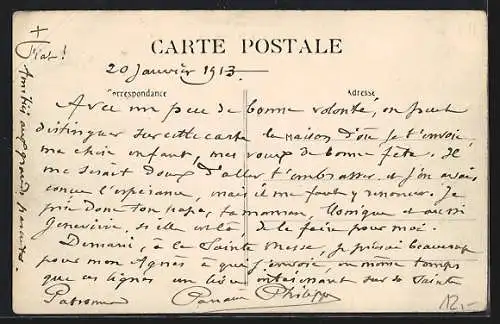 CARTE POSTALE
20 Janvier 1913.
Correspondance
Adresse
Avec un peu de bonne volonté, on peut
distinguer sur cette carte la maison d'où je t'envoie,
ma chère enfant, mes vœux de bonne fête. Il
me serait doux d'aller t'embrasser et j'en avais
conçu l'espérance, mais il me faut y renoncer. Je
prie donc ton papa, ta maman, Monique et aussi
Geneviève, si elle est là de le faire pour moi.
Demain, à la Sainte Messe, je prierai beaucoup
pour mon Agnès à qui j'envoie, en même temps
que ces lignes un livre intéressant sur sa Sainte
Patronne
Parrain Philippe
Amitiés aux grands parents.
12,-